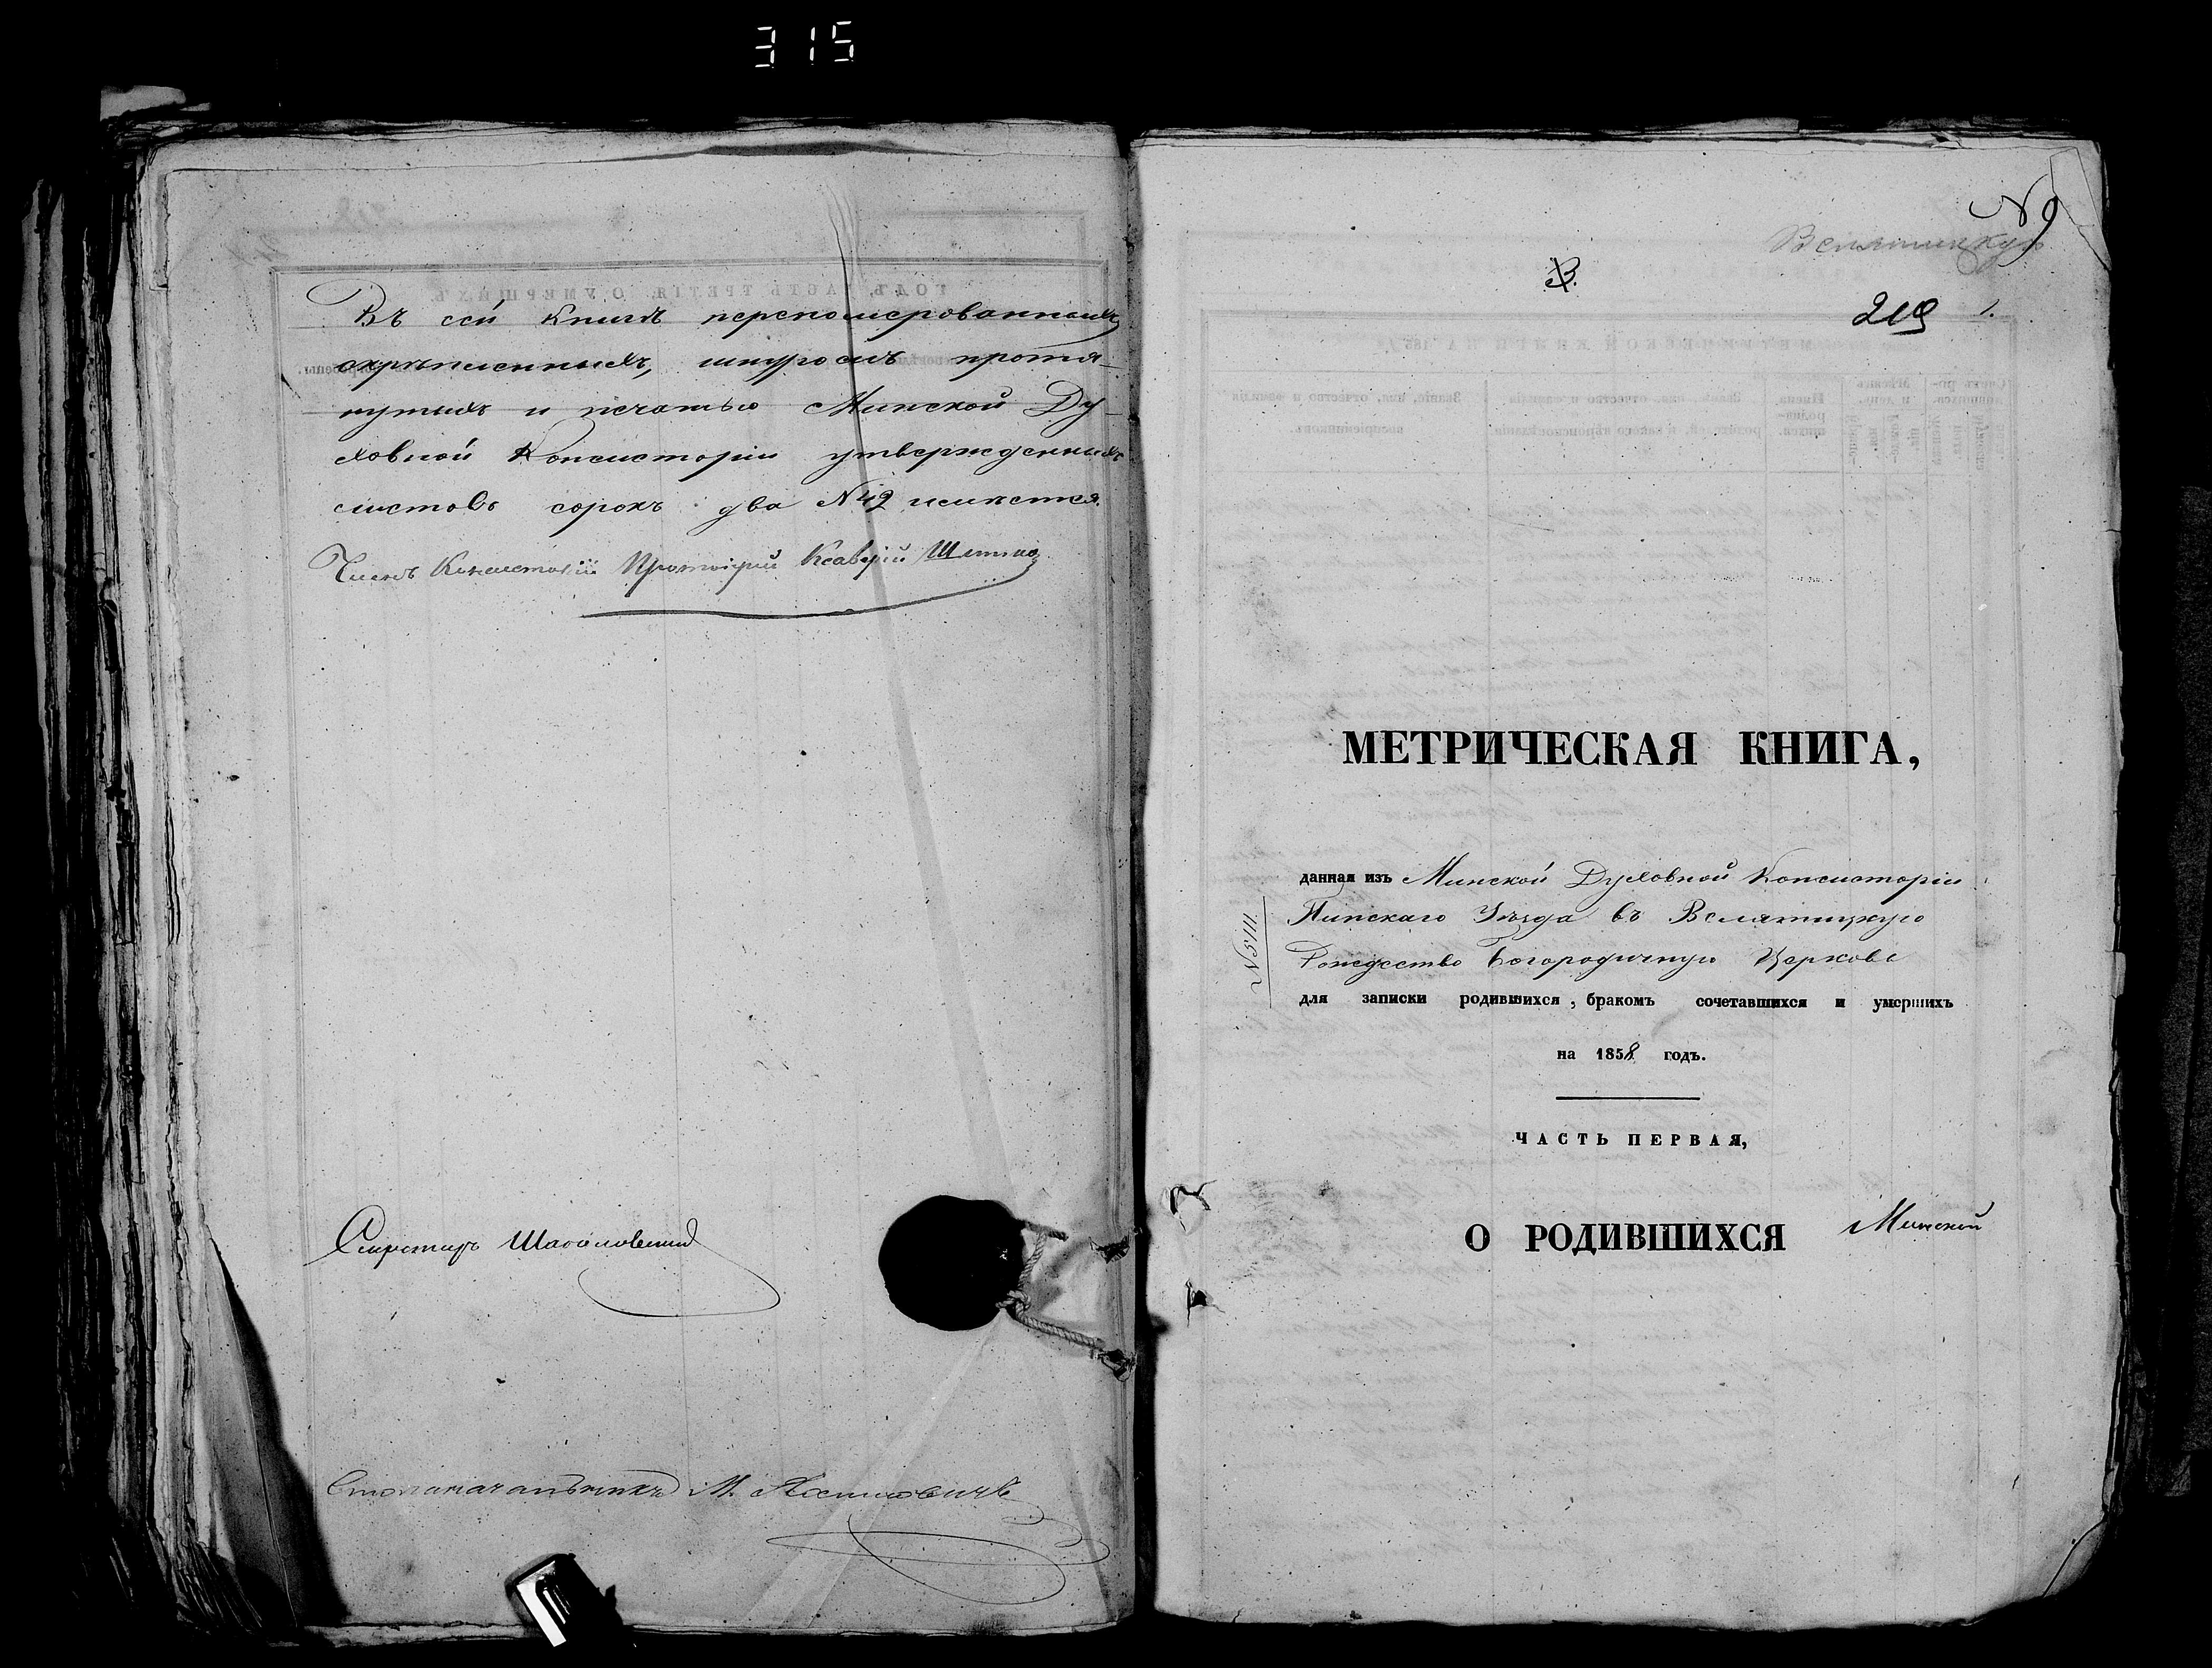 315
Въ сей Книгѣ переномерованныхъ
скрѣпленныхъ, шнуромъ протя-
нутыхъ и печатью Минской Ду-
ховной Консисторіи утвержденныхъ
листовъ сорокъ два N 42 имѣется.
Членъ Консисторіи Протоіерей Ксаверій
Секретарь
Столоначальникъ М.
N 9
Велятицкую
В.
219 1.
МЕТРИЧЕСКАЯ КНИГА,
данная изъ Минской Духовной Консисторіи
Пинскаго Уѣзда въ Велятицкую
Рождество Богородичную Церковь
N 5111.
для записки родившихся, бракомъ сочетавшихся и умершихъ
на 1858 годъ.
ЧАСТЬ ПЕРВАЯ,
О РОДИВШИХСЯ Минской